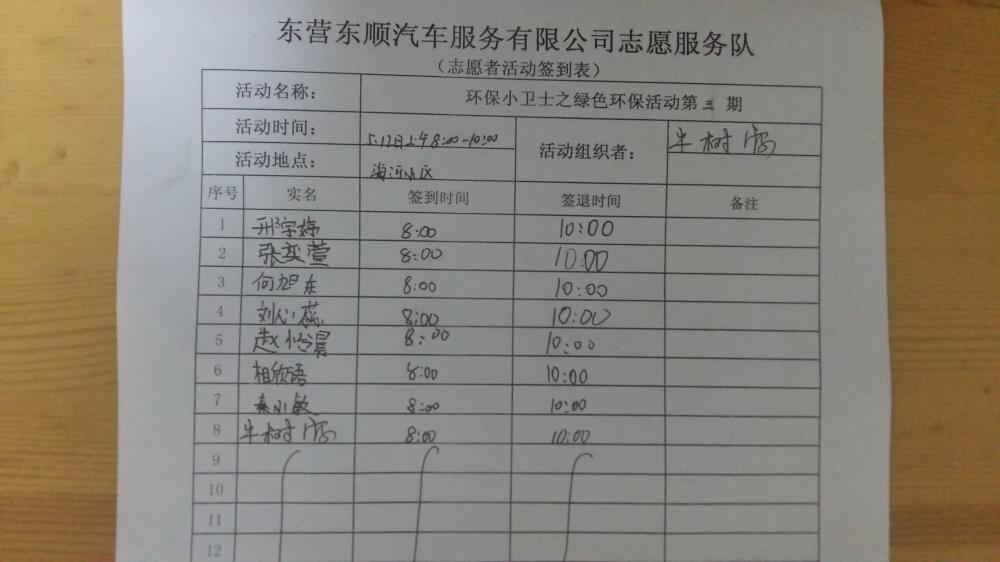 东营东顺汽车服务有限公司志愿服务队
（志愿者活动签到表）
活动名称： 环保小卫士之绿色环保活动第三 期
活动时间： 5.12日上午8:00-10:00 活动组织者： 牛树
活动地点： 海沂小区
序号 实名 签到时间 签退时间 备注
1 邢宇婷 8:00 10:00
2 张奕萱 8:00 10:00
3 何旭东 8:00 10:00
4 刘心蕊 8:00 10:00
5 赵 8:00 10:00
6 相欣语 8:00 10:00
7 秦小敏 8:00 10:00
8 牛树 8:00 10:00
9
10
11
12